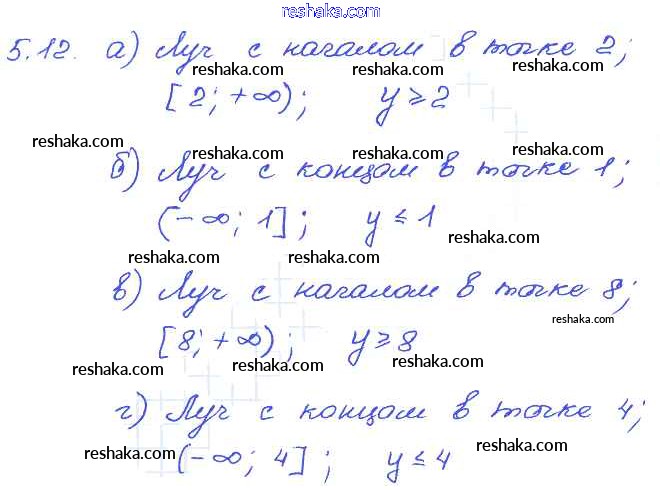 reshaka.com
5.12. а) Луч с началом в точке 2;
reshaka.com reshaka.com reshaka.com
[2; +∞); y ⩾ 2
reshaka.com reshaka.com reshaka.com
б) Луч с концом в точке 1;
(-∞; 1]; y ≤ 1
reshaka.com reshaka.com reshaka.com
в) Луч с началом в точке 8;
reshaka.com
[8; +∞); y ⩾ 8
reshaka.com reshaka.com reshaka.com
г) Луч с концом в точке 4;
reshaka.com reshaka.com reshaka.com
(-∞; 4]; y ≤ 4